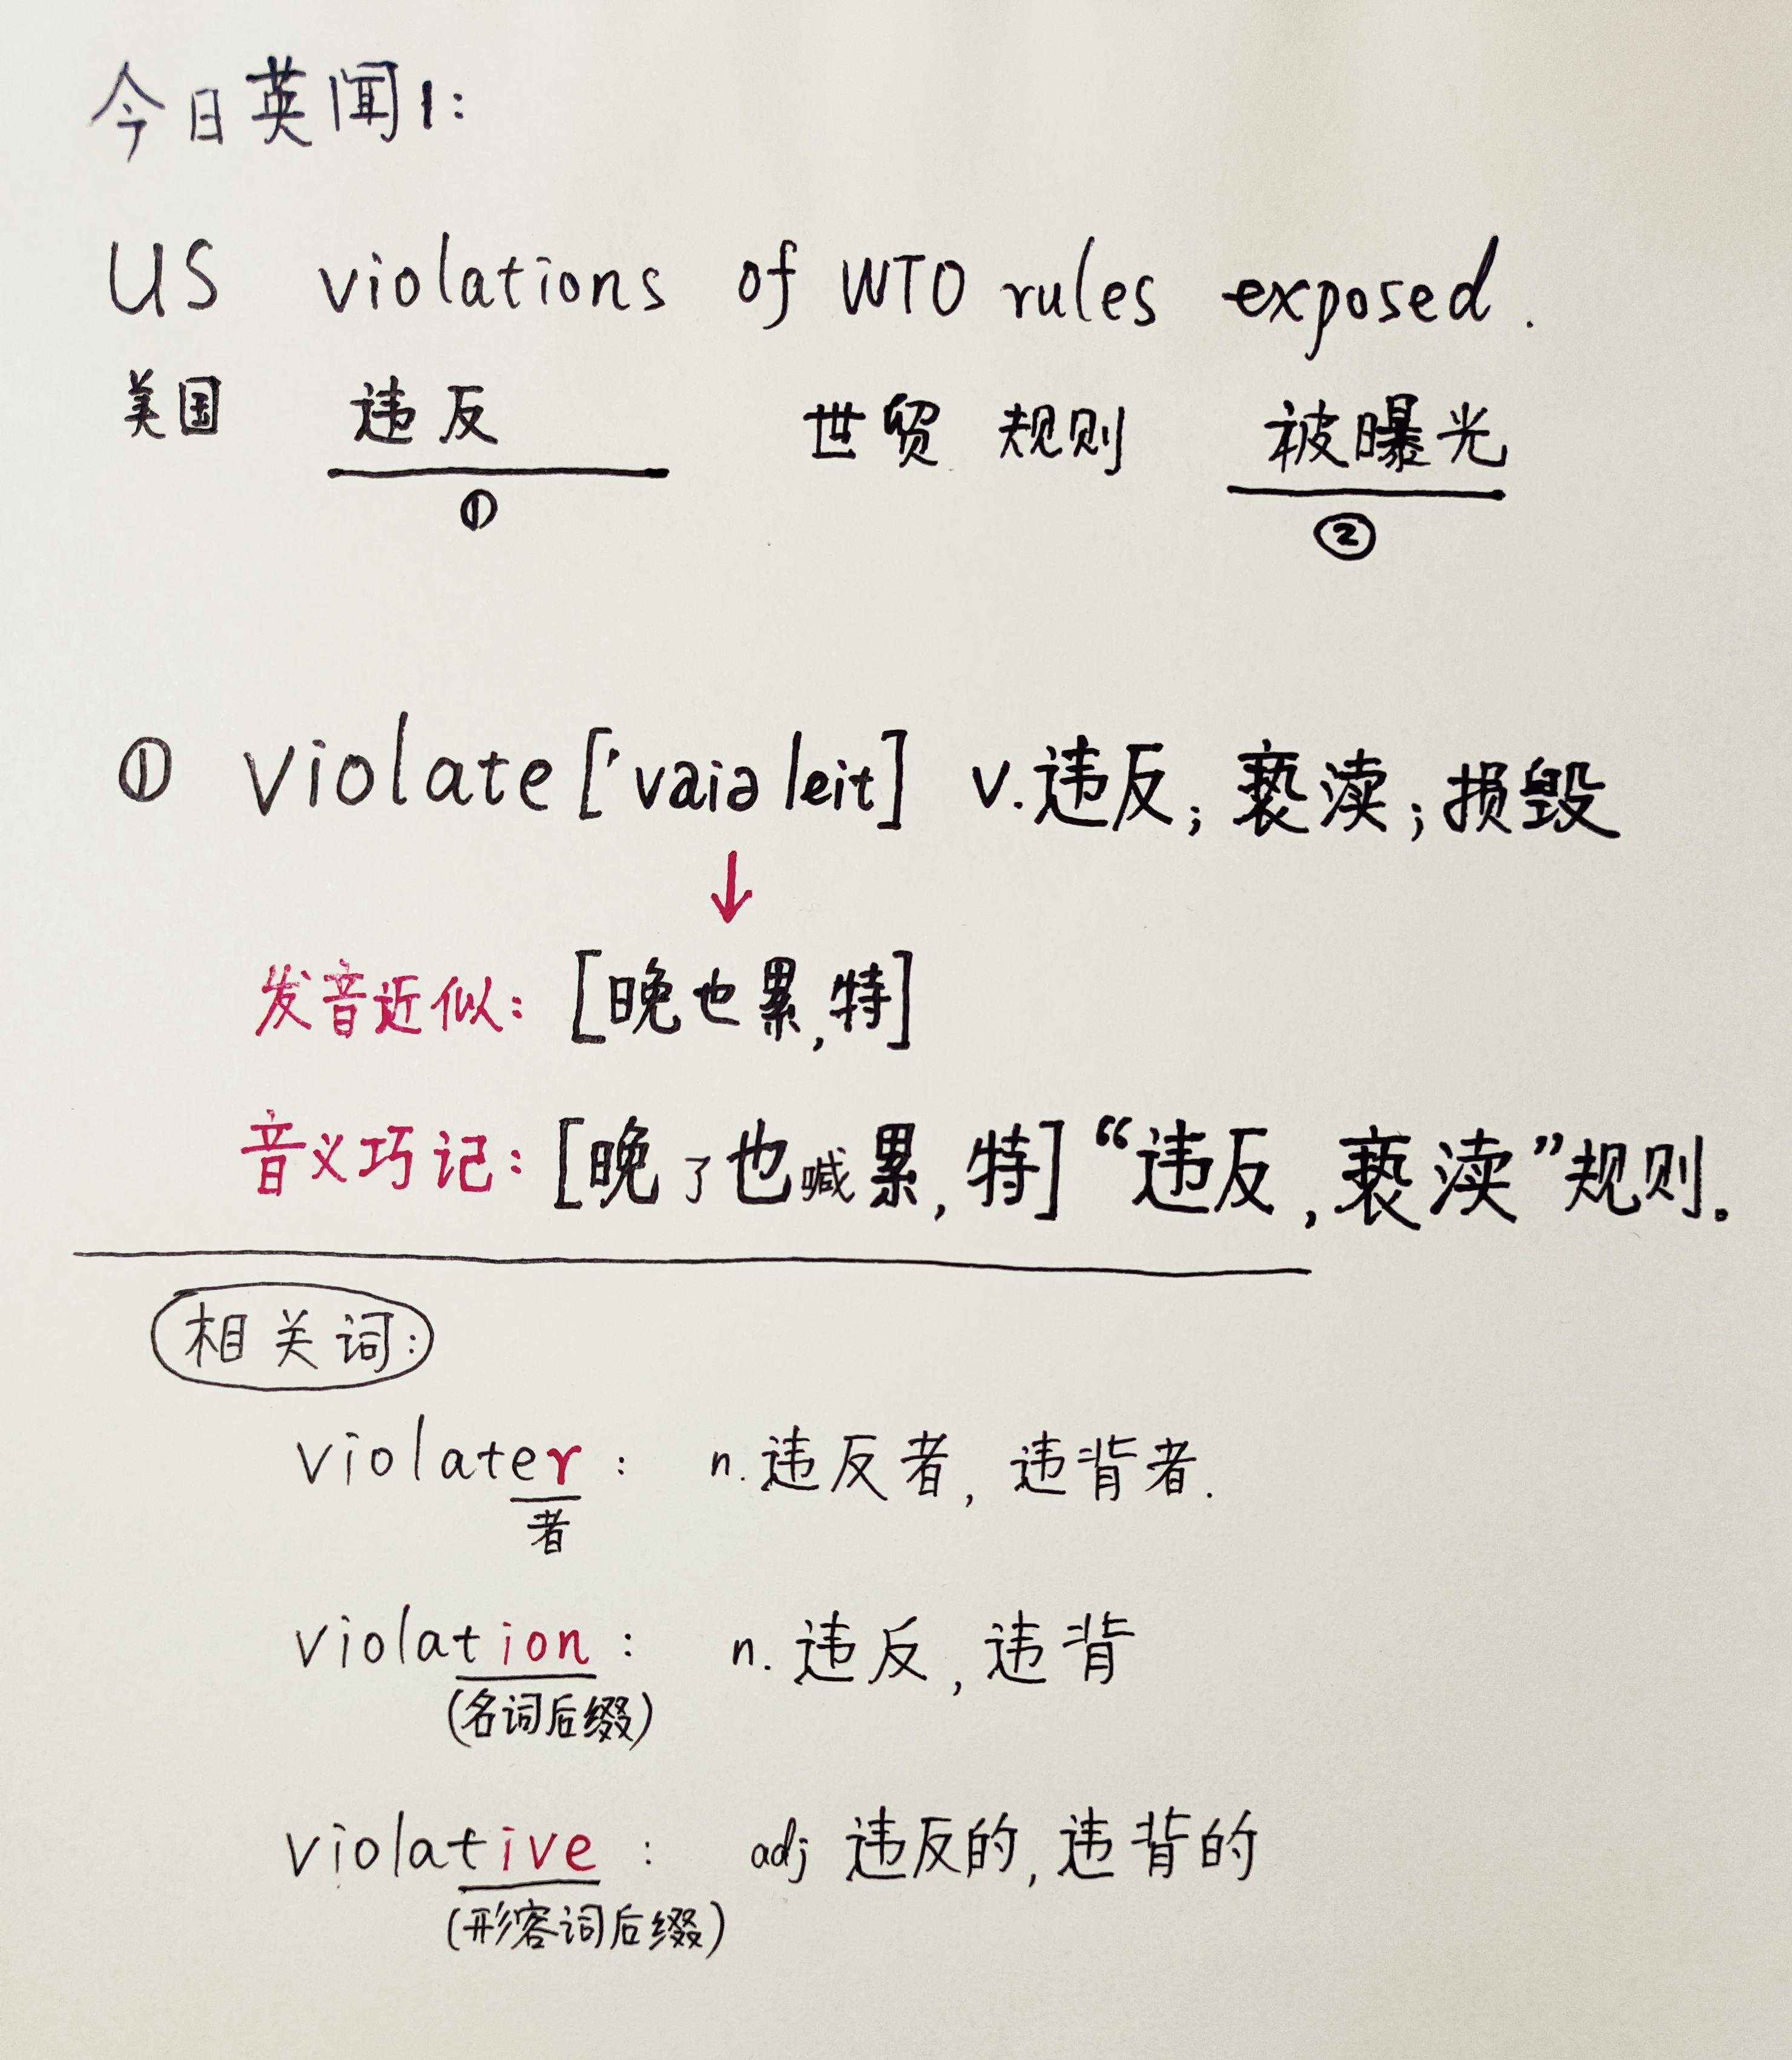 今日英闻1:
US violations of WTO rules exposed.
美国 违反 世贸 规则 被曝光
① ②
① violate ['vaiə leit] v.违反; 亵渎; 损毁
↓
发音近似: [晚也累,特]
音义巧记: [晚了也喊累, 特] “违反, 亵渎”规则。
相关词:
violater : n.违反者, 违背者.
者
violation : n. 违反, 违背
(名词后缀)
violative : adj 违反的, 违背的
(形容词后缀)